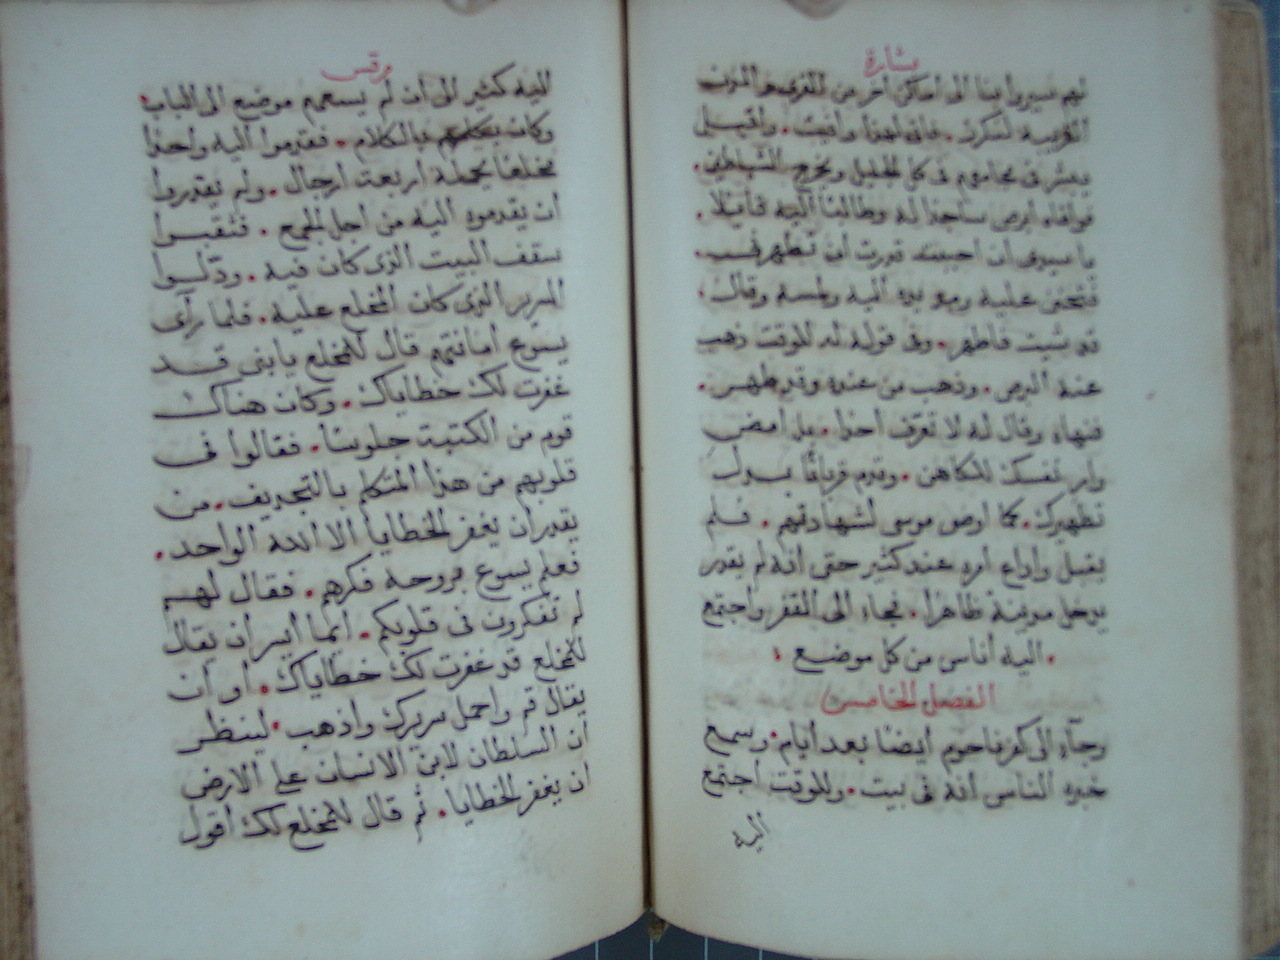 بشارة
لهم سيروا بنا الى اماكن اخر من القرى والمدن
القريبة لنكرز. فانى لهذا وافيت. واقبل
يبشر فى مجامعهم فى كل الجليل ويخرج الشياطين.
فوافاه ابرص ساجدا له وطالبا اليه قايلا.
يا سيدى ان احببت قدرت ان تطهرنى.
فتحنن عليه ومد يده اليه ولمسه وقال.
قد شيت فاطهر. وفى قوله له للوقت ذهب
عنه البرص. وذهب من عنده وقد طهر.
فنهاه وقال له لا تعرّف احدا. بل امض
وار نفسك للكاهن. وقدم قربانا بدل
تطهيرك. كما اوصى موسى لشهادتهم. فلم
يقبل واذاع امره عند كثير حتى انه لم يقدر
يدخل مدينة ظاهرا. فجاء الى القفر واجتمع
. اليه أناس من كل موضع :
الفصل الخامس
وجآء الى كفرناحوم ايضا بعد أيام. وسمع
خبره الناس انه فى بيت. وللوقت اجتمع
اليه
مرقس
اليه كثير الى ان لم يسعهم موضع الى الباب
وكان يكلمهم بالكلام. فقدموا اليه واحدا
مخلعا يحمله أربعة ارجال. ولم يقدروا
ان يقدموه اليه من اجل الجمع. فثقبوا
سقف البيت الذى كان فيه. ودلوا
السرير الذى كان المخلع عليه. فلما رآى
يسوع امانتهم قال للمخلع يا بنى قد
غفرت لك خطاياك. وكان هناك
قوم من الكتبة جلوسا. فقالوا فى
قلوبهم من هذا المتكلم بالتجديف. من
يقدر ان يغفر الخطايا الا الله الواحد.
فعلم يسوع بروحه فكرهم. فقال لهم
لم تفكرون فى قلوبكم. ايما ايسر ان يقال
للمخلع قد غفرت لك خطاياك. أو ان
يقال قم واحمل سريرك واذهب. لينظر
ان السلطان لابن الانسان على الارض
ان يغفر الخطايا. ثم قال للمخلع لك اقول